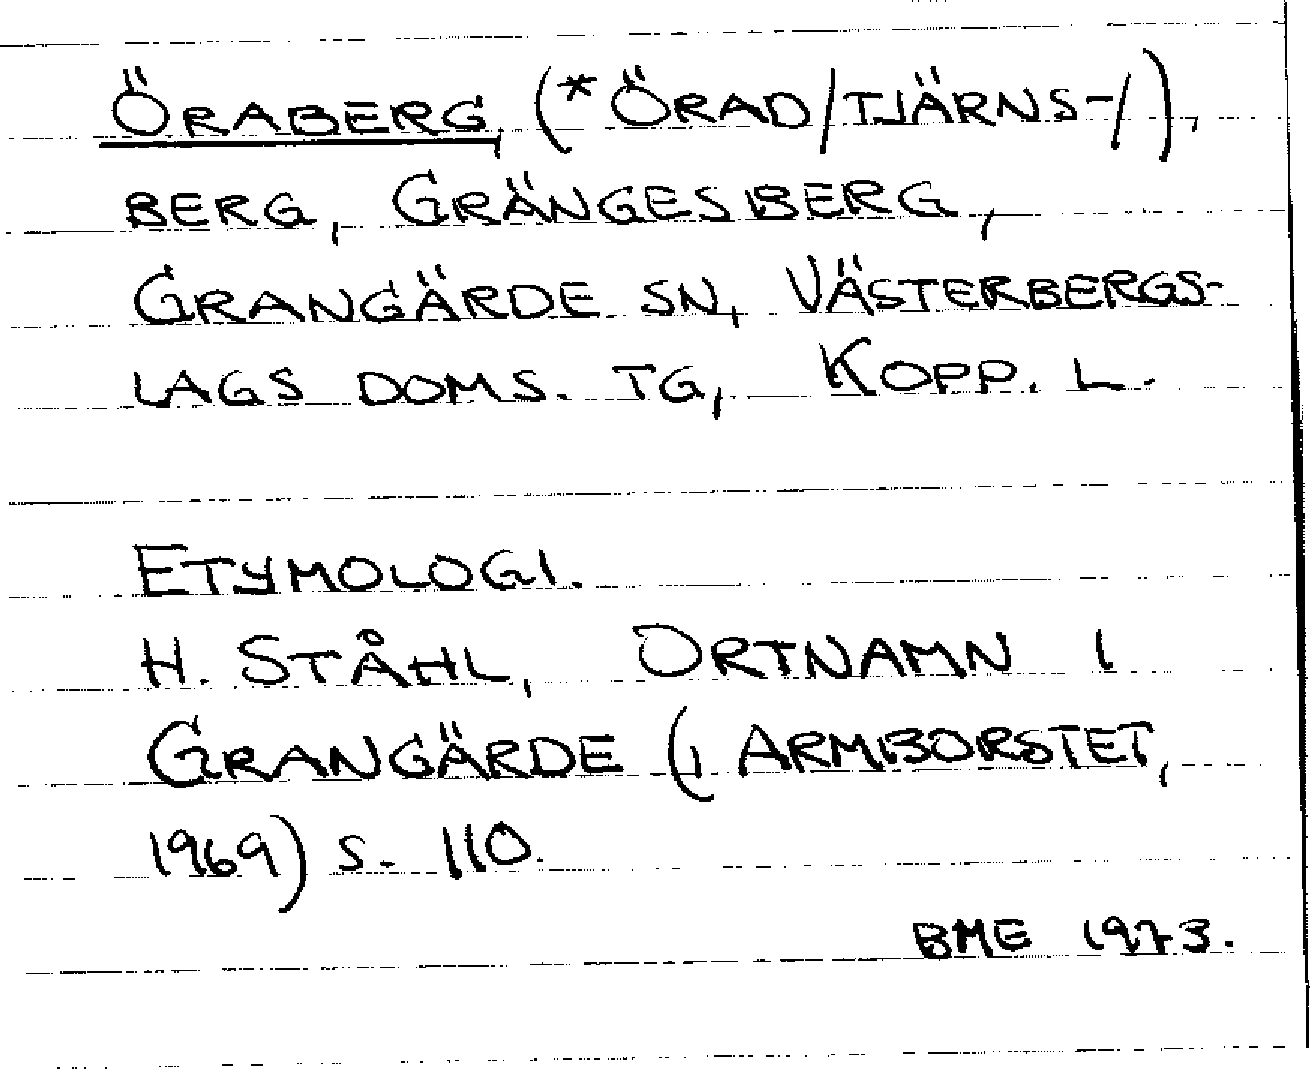 ÖRABERG, (*ÖRAD/TJÄRNS-/),
BERG, GRÄNGESBERG,
GRANGÄRDE SN, VÄSTERBERGS-
LAGS DOMS. TG, KOPP. L.
ETYMOLOGI.
H. STÅHL, ORTNAMN I
GRANGÄRDE (I ARMBORSTET,
1969) S. 110.
BME 1973.